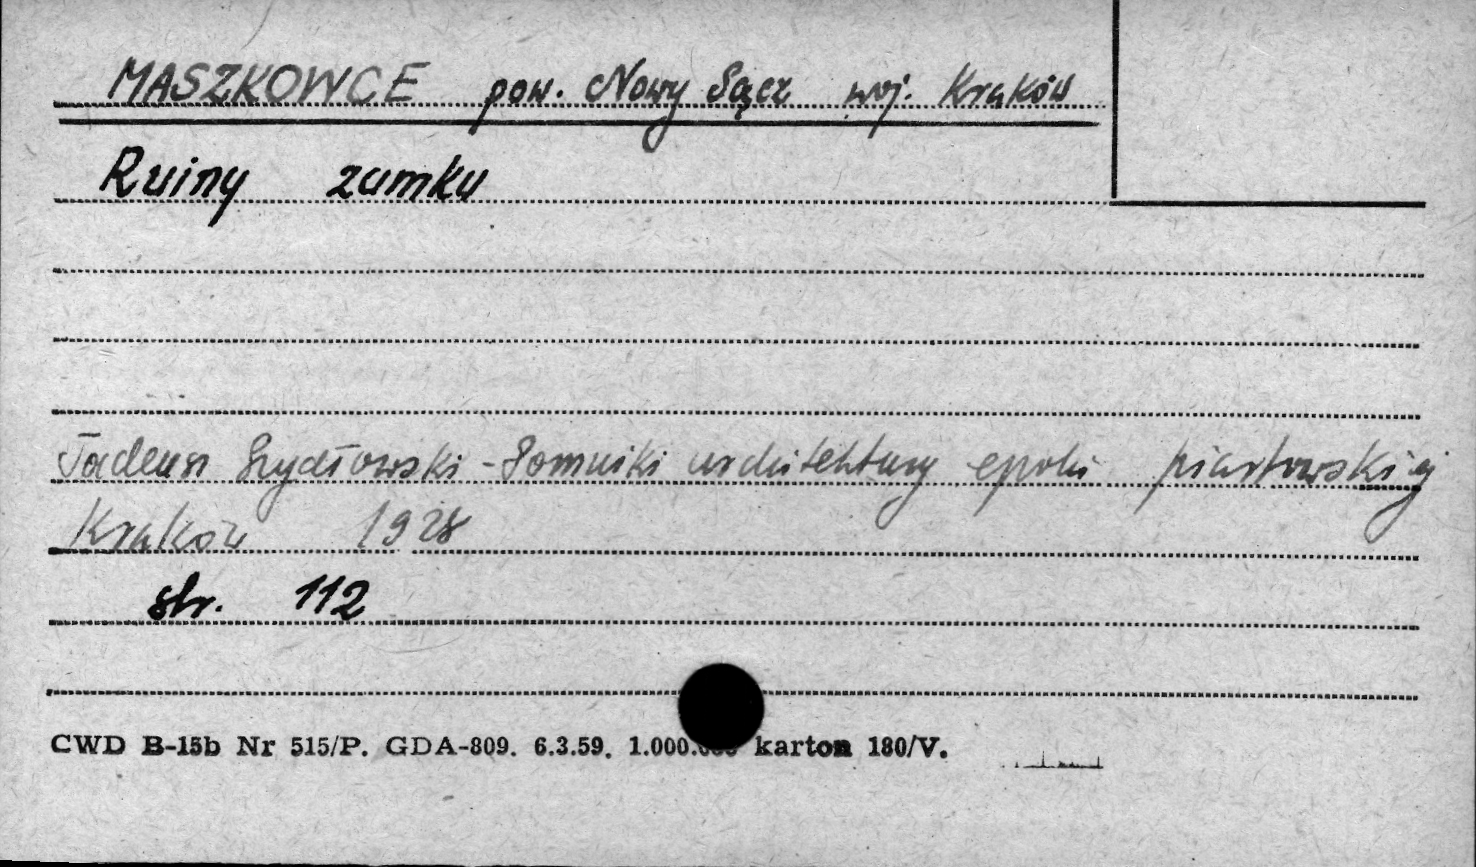 MASZKOWCE pow. Nowy Sącz woj. Kraków
Ruiny zamku
Tadeusz Szydłowski - Pomniki architektury epoki piastowskiej
Kraków 1928
str. 112
CWD B-15b Nr 515/P. GDA-809. 6.3.59. 1.000.000 karton 180/V.